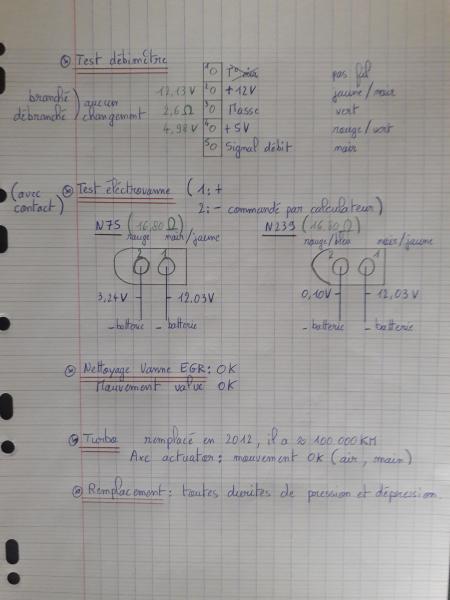 Test débimètre
1 T° air pas fil
2 + 12V jaune/noir
3 Masse vert
4 + 5V rouge/vert
5 Signal débit noir
branché
débranché ) aucun changement
12,13V
2,6Ω
4,98V
(avec contact)
Test électrovanne (1: +
2: - commandé par calculateur)
N75 (16,80 Ω) N239 (16,80 Ω)
rouge noir/jaune rouge/bleu noir/jaune
2 1 2 1
3,24V 12,03V 0,10V 12,03V
- batterie - batterie - batterie - batterie
Nettoyage Vanne EGR: OK
Mouvement valve OK
Turbo remplacé en 2012, il a ≈ 100 000 KM
Axe actuator: mouvement OK (air, main)
Remplacement: toutes durites de pression et dépression.